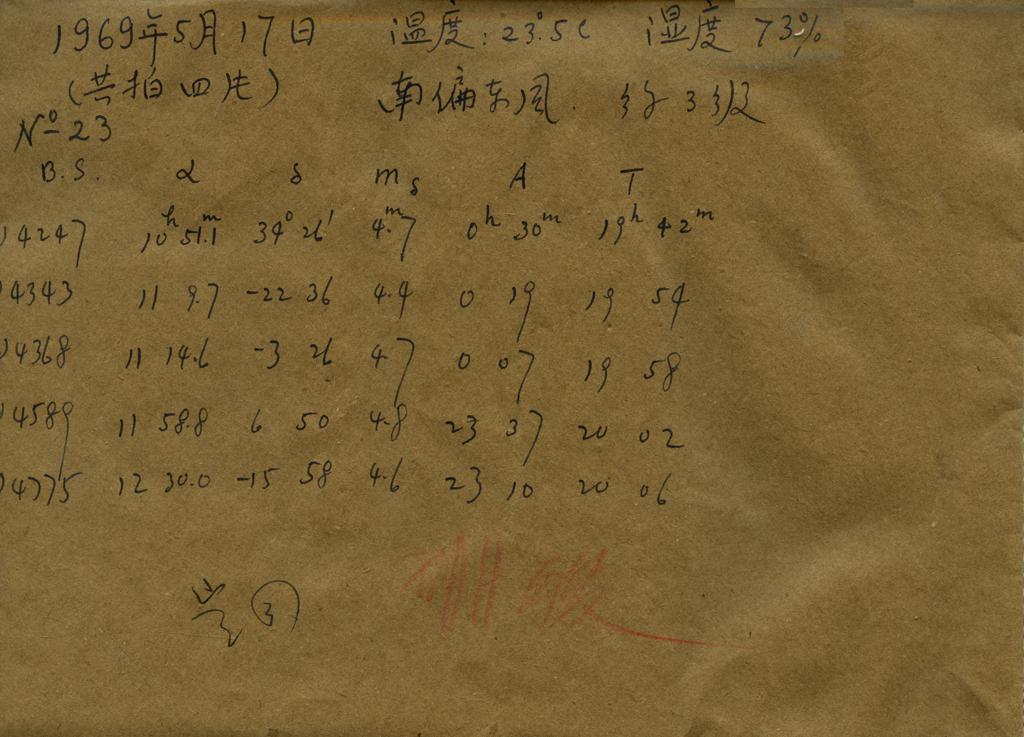 1969年5月17日 温度:23°.5C 湿度 73%
(共拍四片) 南偏东风. 约3级
Nº 23
B.S. α δ m_s A T
14247 10ʰ51.1ᵐ 34° 26′ 4.ᵐ7 0ʰ 30ᵐ 19ʰ 42ᵐ
14343 11 9.7 -22 36 4.4 0 19 19 54
14368 11 14.6 -3 26 4.7 0 07 19 58
14589 11 58.8 6 50 4.8 23 37 20 02
14775 12 30.0 -15 58 4.6 23 10 20 06
③